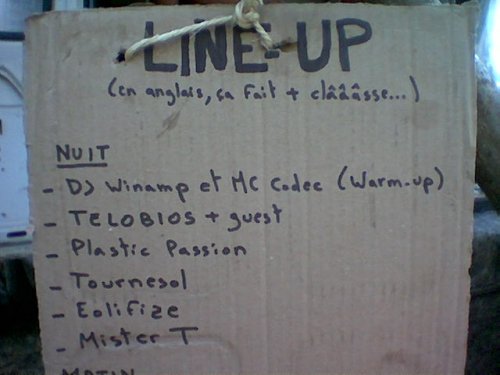 LINE-UP
(en anglais, ça fait + clâââsse...)
NUIT
- DJ Winamp et MC Codec (Warm-up)
- TELOBIOS + guest
- Plastic Passion
- Tournesol
- Eolifize
- Mister T
MATIN